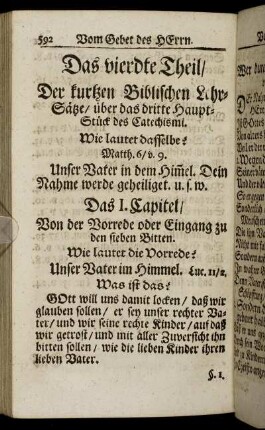 592 Vom Gebet des HErrn.
Das vierdte Theil/
Der kurtzen Biblischen Lehr-
Sätze/ über das dritte Haupt-
Stück des Catechismi.
Wie lautet dasselbe?
Matth. 6/ v. 9.
Unser Vater in dem Him̃el. Dein
Nahme werde geheiliget. u. s. w.
Das I. Capitel/
Von der Vorrede oder Eingang zu
den sieben Bitten.
Wie lautet die Vorrede?
Unser Vater im Himmel. Luc. 11/2.
Was ist das?
GOtt will uns damit locken/ daß wir
glauben sollen/ er sey unser rechter Va-
ter/ und wir seine rechte Kinder/ auf daß
wir getrost/ und mit aller Zuversicht ihn
bitten sollen/ wie die lieben Kinder ihren
lieben Vater.
§. 1.